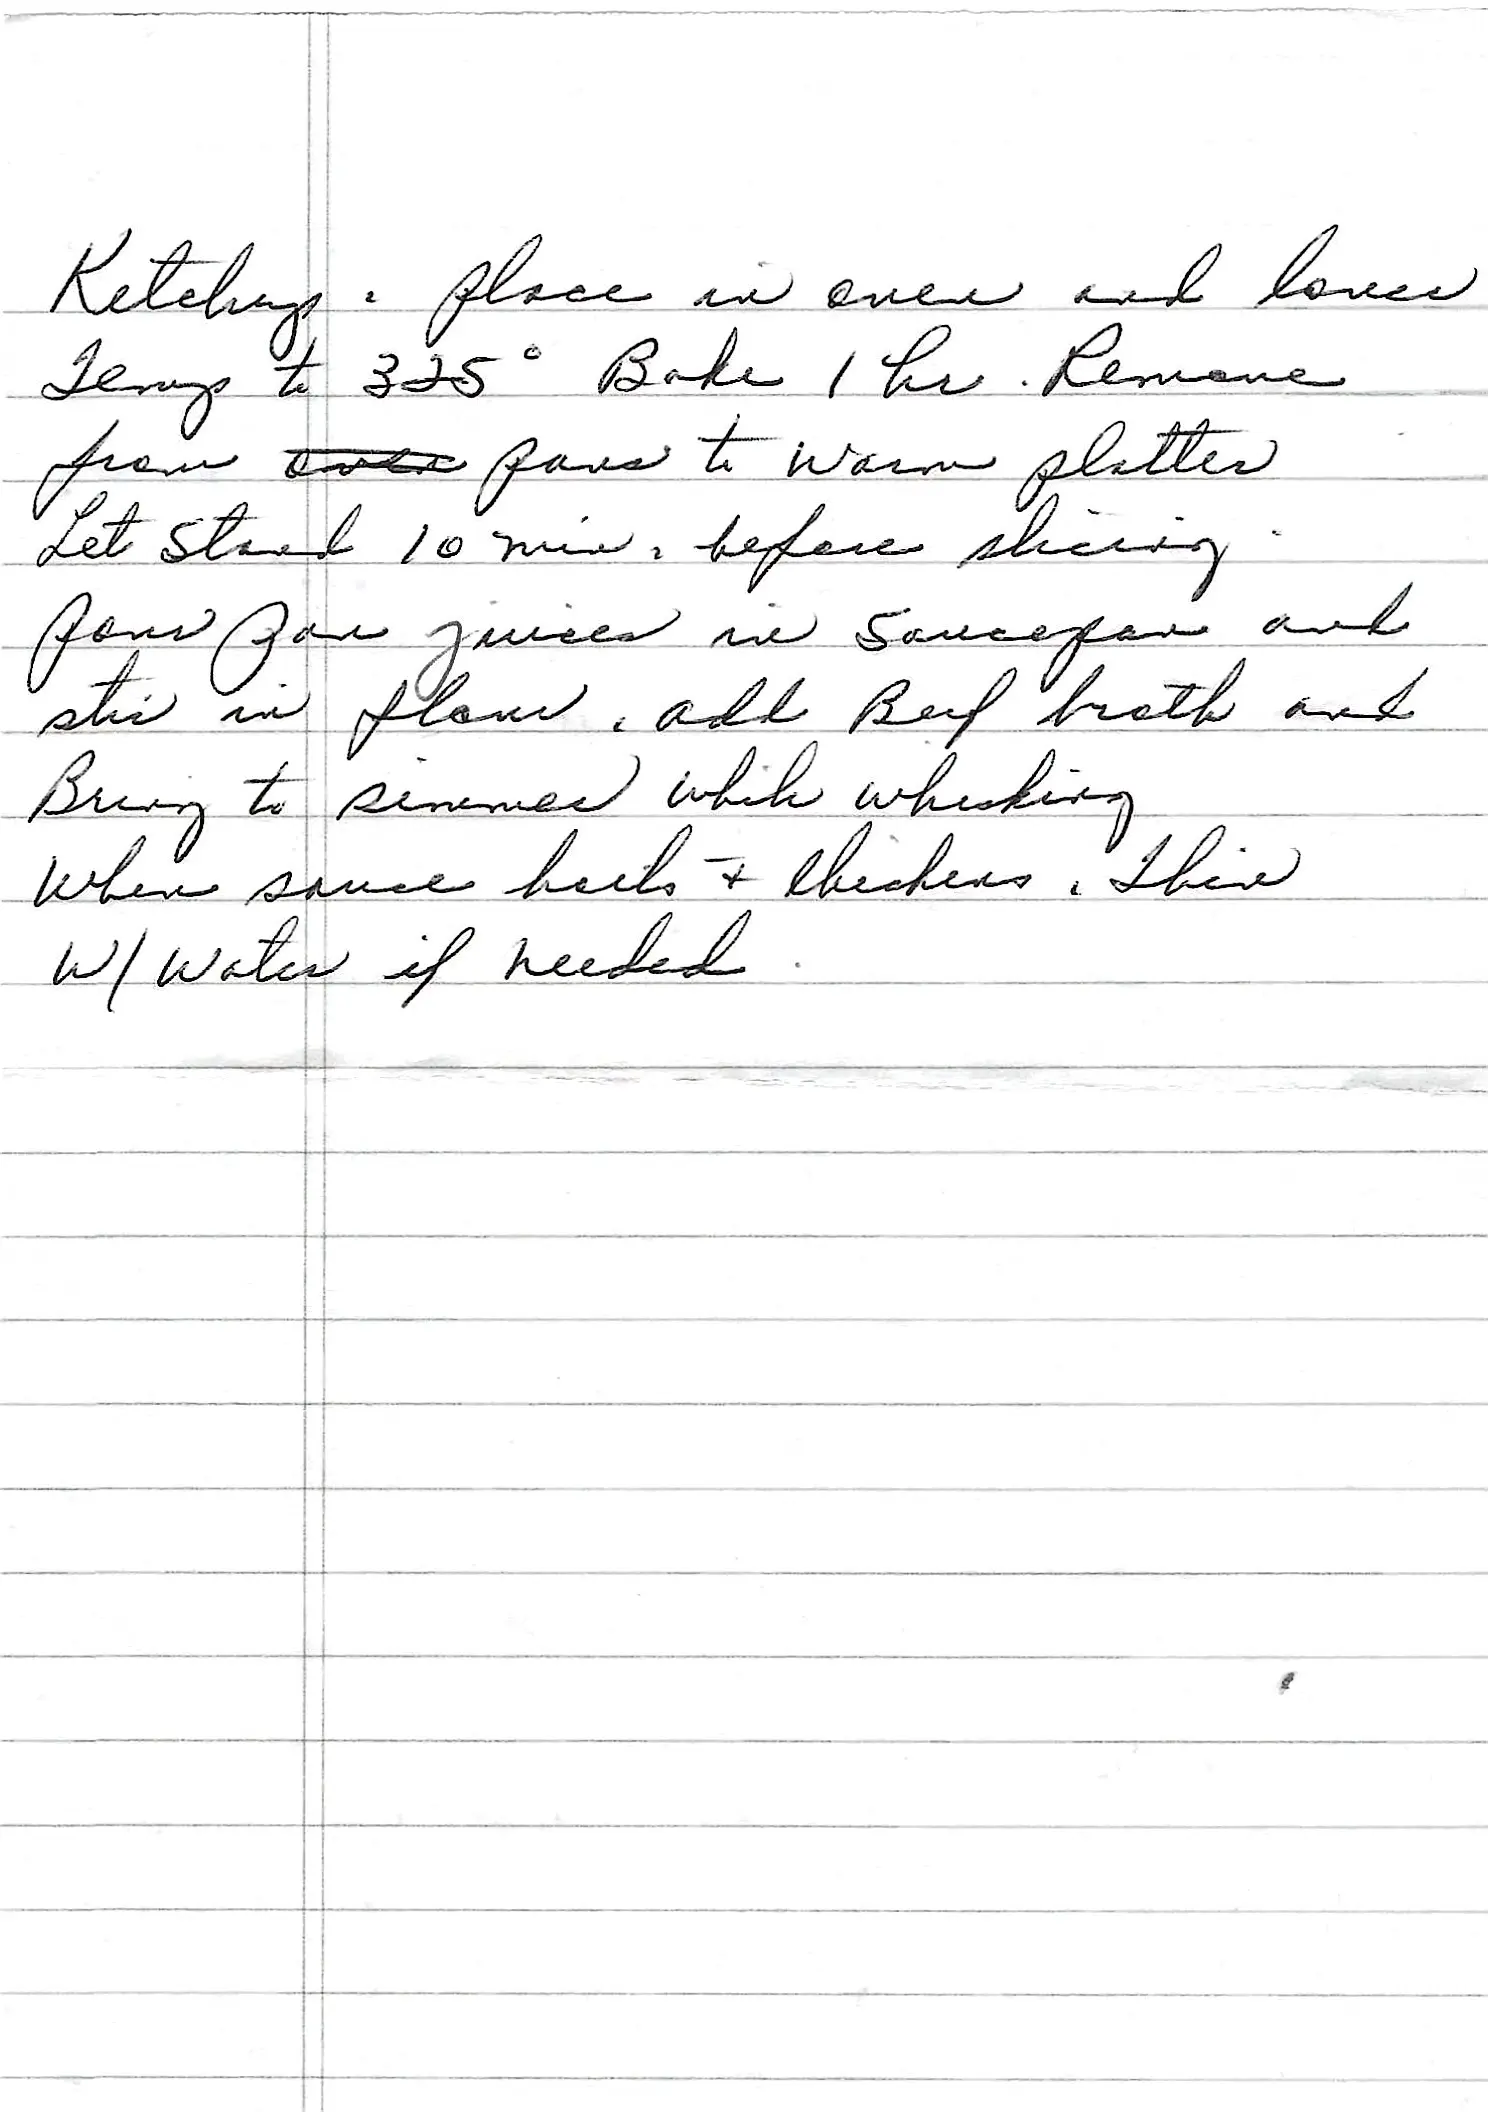 Ketchup. place in oven and lower
Temp to 325° Bake 1 hr. Remove
from oven pans to warm platter
Let Stand 10 min. before slicing.
pour pan juices in Saucepan and
stir in flour. add Beef broth and
Bring to simmer while whisking
when sauce boils + thickens. Thin
w/ water if needed.